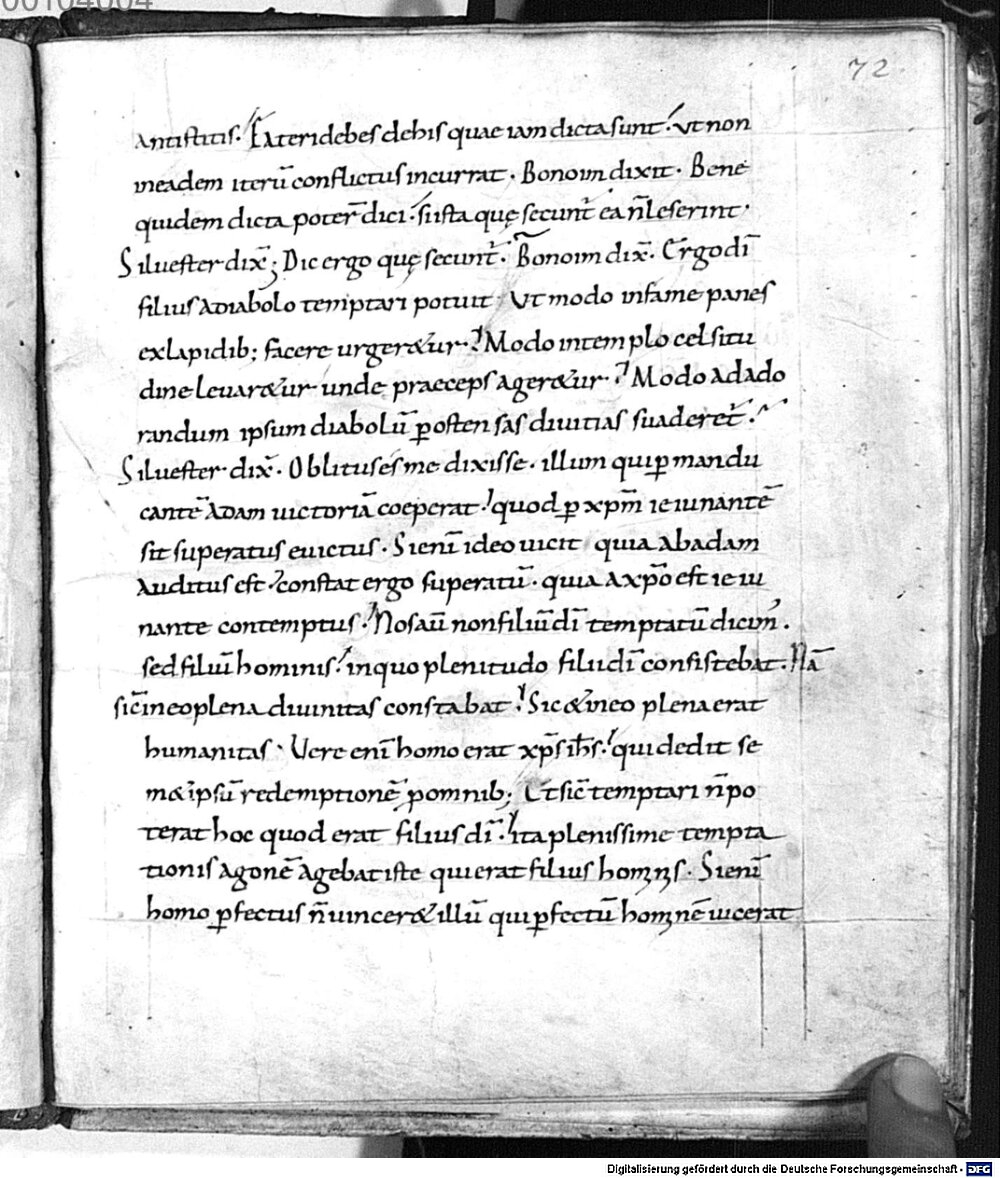 00104004
72
antistitis. Fateri debes de his quae iam dicta sunt. ut non
in eadem iterū conflictus incurrat. Bonoim dixit. Bene
quidem dicta poter̄ dici. si ista quę secunt̄ ea n̄ leserint.
Siluester dix̄; Dic ergo quę secunt̄. Bonoim dix̄. Ergo dī
filius a diabolo temptari potuit Ut modo in fame panes
ex lapidib; facere urger&ur? Modo in templo celsitu
dine leuar&ur unde praeceps ager&ur? Modo ad ado
randum ipsum diabolū ꝑ ostensas diuitias suaderet̄.
Siluester dix̄. Oblitus es me dixisse. illum qui ꝑ mandu
cantē adam uictoriā coeperat. quod ꝑ xp̄m ieiunantē
sit superatus euictus. Si enī ideo uicit quia ab adam
auditus est. constat ergo superatū. quia a xp̄o est ieiu
nante contemptus. Nos aū non filiū dī temptatū dicim'.
sed filiū hominis. in quo plenitudo filii dī consistebat. Nā
sic̄ in eo plena diuinitas constabat. Sic & in eo plena erat
humanitas. Uere enī homo erat xp̄s ih̄s. qui dedit se
m&ipsū redemptionē ꝓ omnib; Et sic̄ temptari n̄ po
terat hoc quod erat filius dī. ita plenissime tempta
tionis agonē agebat iste qui erat filius hominis. Si enī
homo ꝑfectus n̄ uincer& illū qui ꝑfectū hominē uicerat
Digitalisierung gefördert durch die Deutsche Forschungsgemeinschaft - DFG